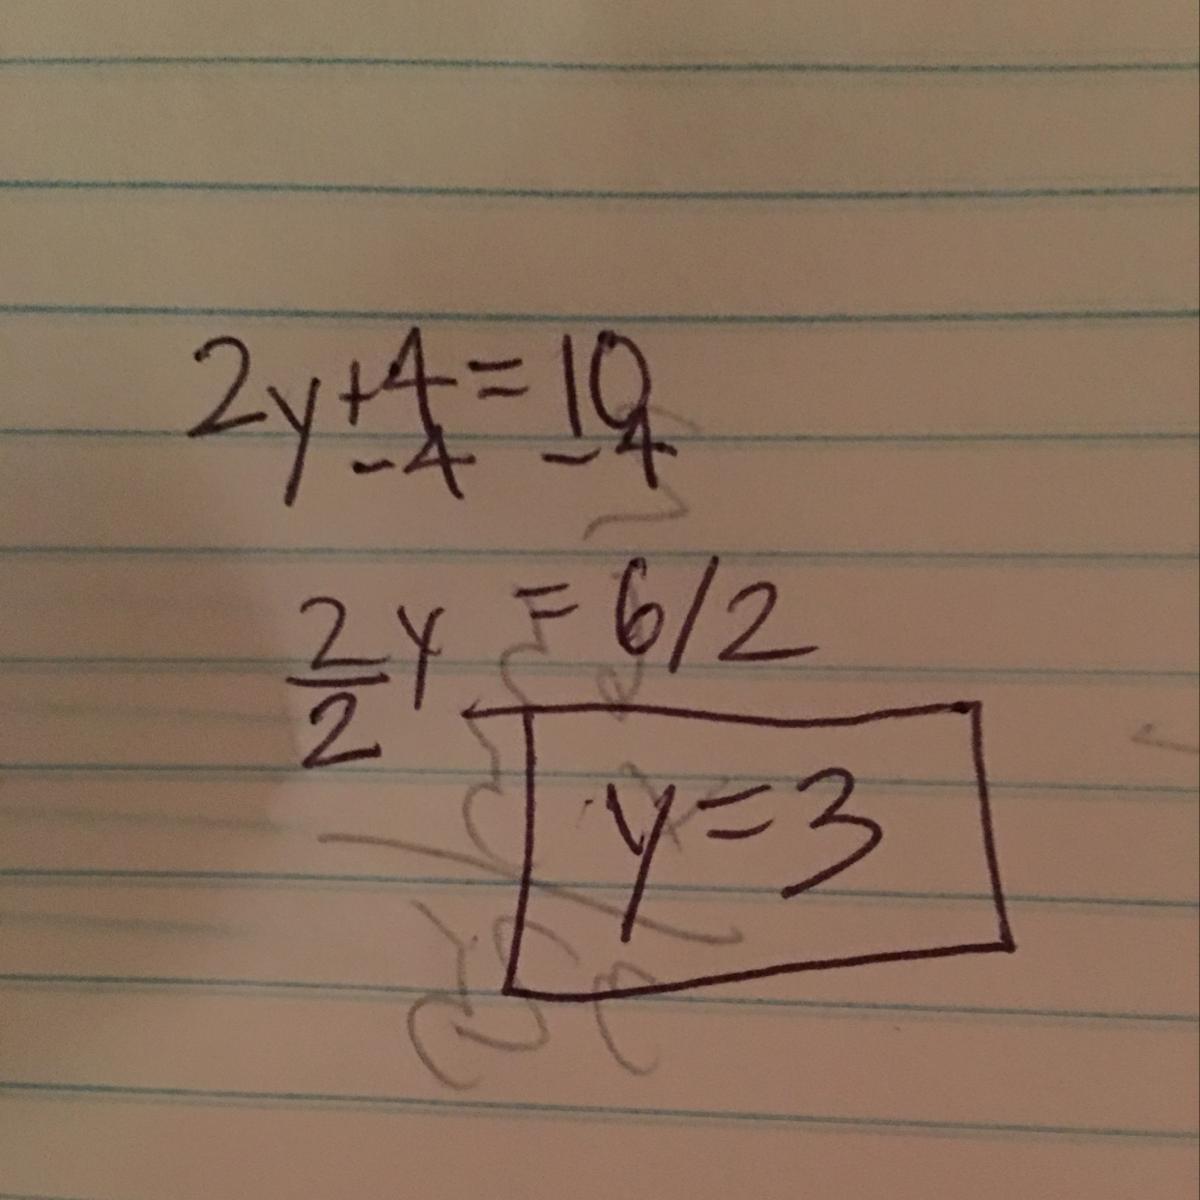 2y+4=10
-4 -4
2/2 y = 6/2
y=3